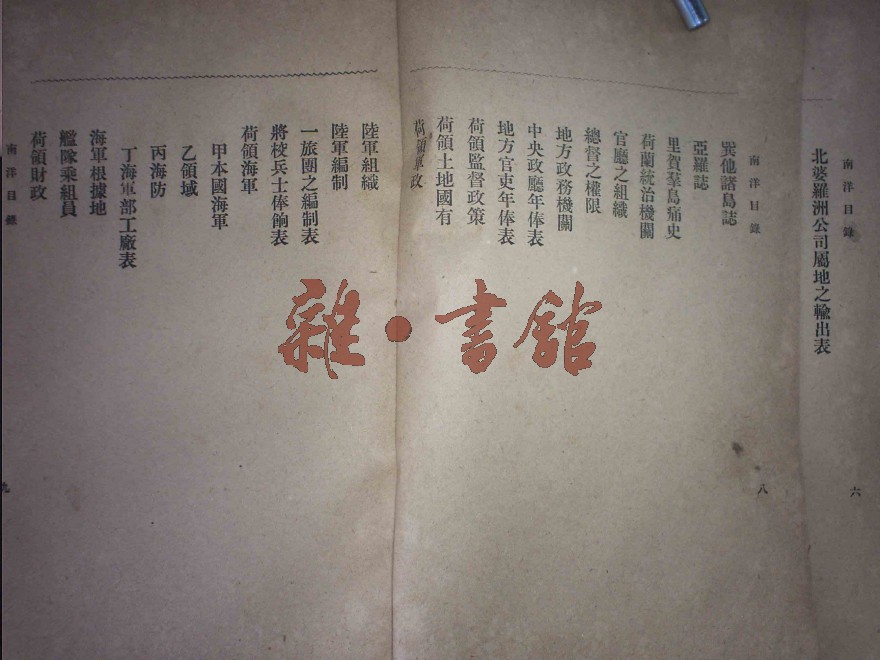 南洋目錄
六
北婆羅洲公司屬地之輸出表
南洋目錄
八
巽他諸島誌
亞羅誌
里賀羣島痛史
荷蘭統治機關
官廳之組織
總督之權限
地方政務機關
中央政廳年俸表
地方官吏年俸表
荷領監督政策
荷領土地國有
荷領軍政
陸軍組織
陸軍編制
一旅團之編制表
將校兵士俸餉表
荷領海軍
甲本國海軍
乙領域
丙海防
丁海軍部工廠表
海軍根據地
艦隊乘組員
荷領財政
南洋目錄
九
雜·書館